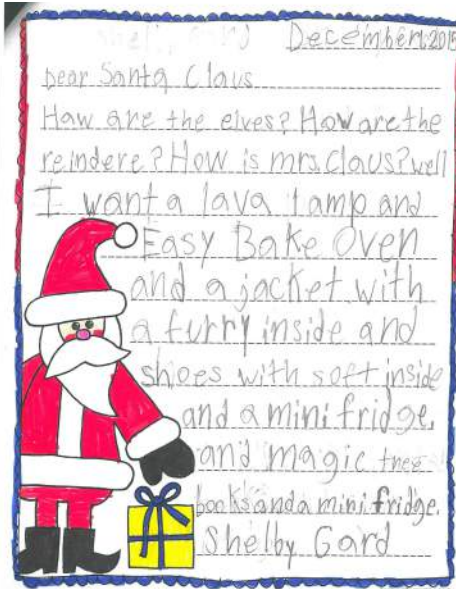 December 2015
Dear Santa Claus
How are the elves? How are the
reindere? How is mrs. Claus? well
I want a lava lamp and
Easy Bake Oven
and a jacket with
a furry inside and
shoes with soft inside
and a mini fridge.
and magic tree
books and a mini fridge.
Shelby Gard